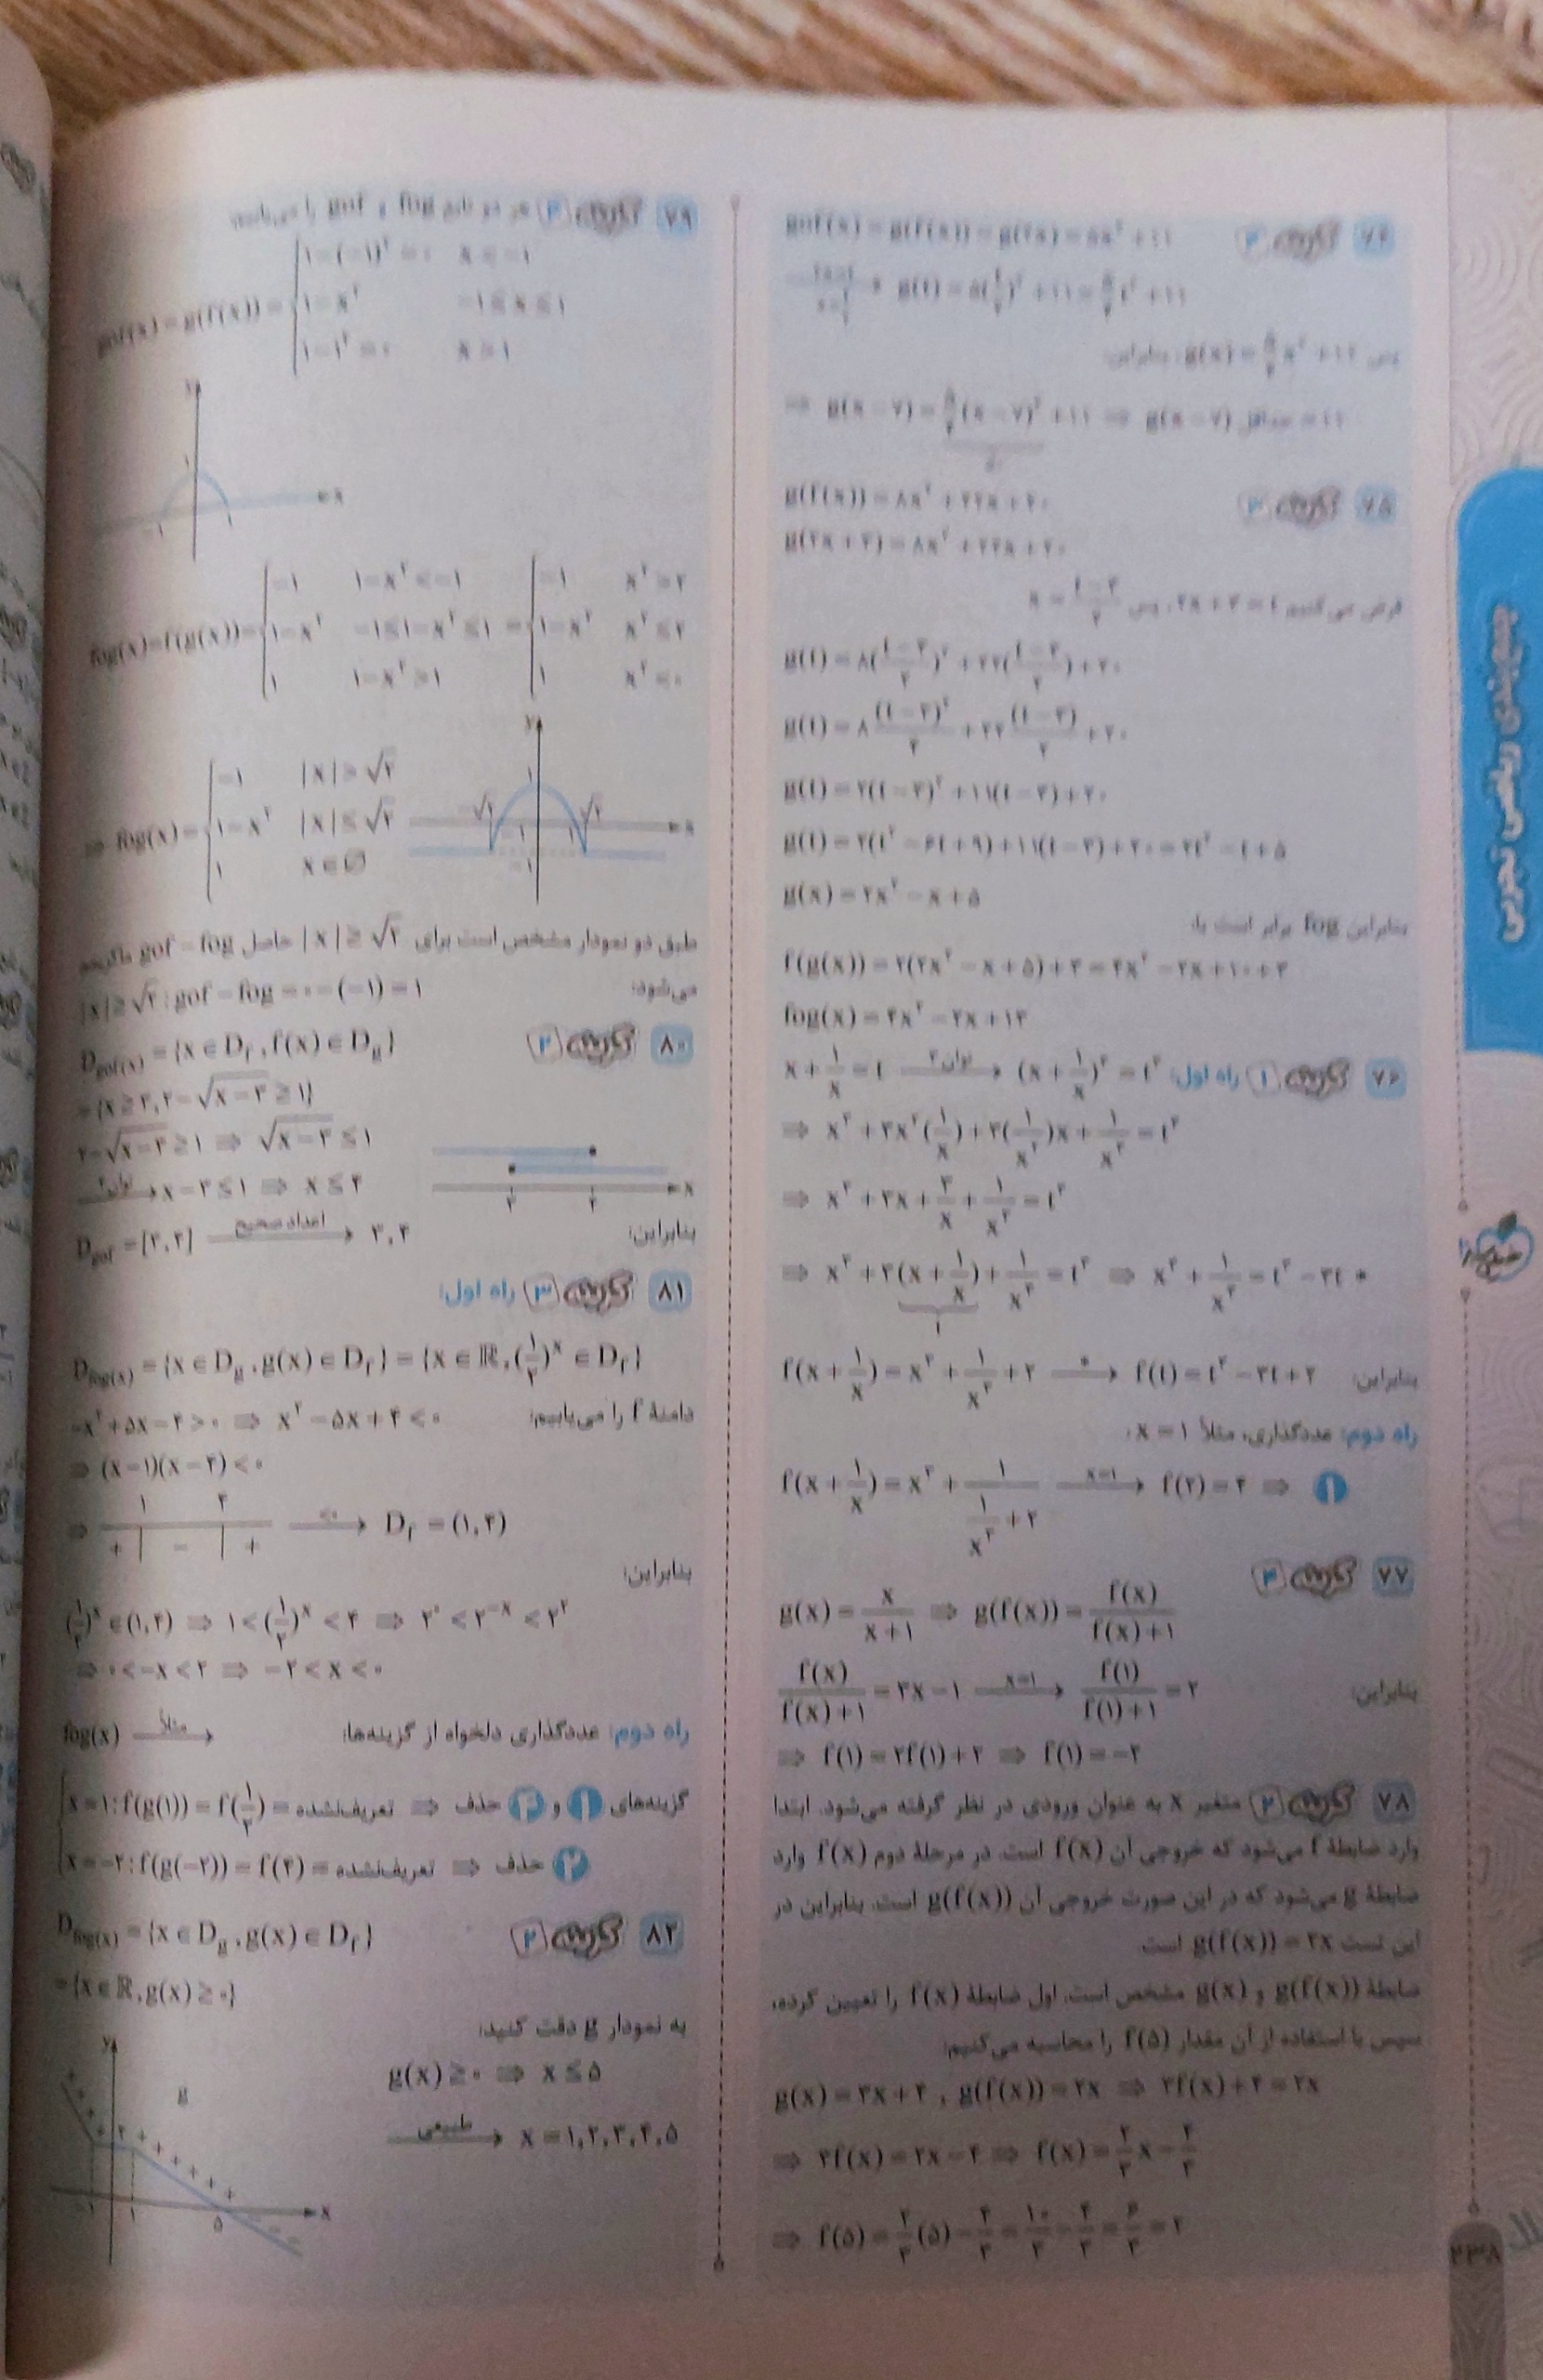 ۷۴ گزینه
gof(x) = g(f(x)) = g(۲x) = ۵x² + ۱۱
g(t) = ۵(t/۲)² + ۱۱ = ۵/۴ t² + ۱۱
⇒ g(x − ۷) = ۵/۴ (x − ۷)² + ۱۱ ⇒ g(x − ۷) = ۱۱
۷۵ گزینه
g(f(x)) = ۸x² + ۲۲x + ۲۰
g(۲x + ۳) = ۸x² + ۲۲x + ۲۰
فرض می‌کنیم ۲x + ۳ = t، پس x = (t − ۳)/۲
g(t) = ۸((t − ۳)/۲)² + ۲۲((t − ۳)/۲) + ۲۰
g(t) = ۸ (t − ۳)²/۴ + ۲۲ (t − ۳)/۲ + ۲۰
g(t) = ۲(t − ۳)² + ۱۱(t − ۳) + ۲۰
g(t) = ۲(t² − ۶t + ۹) + ۱۱(t − ۳) + ۲۰ = ۲t² − t + ۵
g(x) = ۲x² − x + ۵
بنابراین fog برابر است با:
f(g(x)) = ۲(۲x² − x + ۵) + ۳ = ۴x² − ۲x + ۱۰ + ۳
fog(x) = ۴x² − ۲x + ۱۳
۷۶ گزینه ۱ راه اول: x + ۱/x = t توان ۳→ (x + ۱/x)³ = t³
⇒ x³ + ۳x²(۱/x) + ۳(۱/x²)x + ۱/x³ = t³
⇒ x³ + ۳x + ۳/x + ۱/x³ = t³
⇒ x³ + ۳(x + ۱/x) + ۱/x³ = t³ ⇒ x³ + ۱/x³ = t³ − ۳t *
بنابراین: f(x + ۱/x) = x³ + ۱/x³ + ۲ *→ f(t) = t³ − ۳t + ۲
راه دوم: عددگذاری، مثلاً x = ۱:
f(x + ۱/x) = x³ + ۱/(۱/x³ + ۲) x=۱→ f(۲) = ۴ ⇒ ۱
۷۷ گزینه
g(x) = x/(x+۱) ⇒ g(f(x)) = f(x)/(f(x)+۱)
بنابراین: f(x)/(f(x)+۱) = ۳x − ۱ x=۱→ f(۱)/(f(۱)+۱) = ۲
⇒ f(۱) = ۲f(۱) + ۲ ⇒ f(۱) = −۲
۷۸ گزینه ۲ متغیر x به عنوان ورودی در نظر گرفته می‌شود. ابتدا
وارد ضابطهٔ f می‌شود که خروجی آن f(x) است. در مرحلهٔ دوم f(x) وارد
ضابطهٔ g می‌شود که در این صورت خروجی آن g(f(x)) است. بنابراین در
این تست g(f(x)) = ۲x است
ضابطهٔ g(f(x)) و g(x) مشخص است. اول ضابطهٔ f(x) را تعیین کرده،
سپس با استفاده از آن مقدار f(۵) را محاسبه می‌کنیم:
g(x) = ۳x + ۴ , g(f(x)) = ۲x ⇒ ۳f(x) + ۴ = ۲x
⇒ ۳f(x) = ۲x − ۴ ⇒ f(x) = ۲/۳ x − ۴/۳
⇒ f(۵) = ۲/۳ (۵) − ۴/۳ = ۱۰/۳ − ۴/۳ = ۶/۳ = ۲
۷۹ گزینه هر دو تابع fog و gof را می‌یابیم:
gof(x) = g(f(x)) = ۱ − (−۱)² = ۰ x < −۱
۱ − x² −۱ ≤ x ≤ ۱
۱ − ۱² = ۰ x > ۱
y
۱
−۱ ۱ x
fog(x) = f(g(x)) = −۱ ۱ − x² < −۱ = −۱ x² > ۲
۱ − x² −۱ ≤ ۱ − x² ≤ ۱ ۱ − x² x² ≤ ۲
۱ ۱ − x² > ۱ ۱ x² < ۰
⇒ fog(x) = −۱ |x| > √۲
۱ − x² |x| ≤ √۲
۱ x ∈ ∅
y
۱
−√۲ √۲
x
−۱
طبق دو نمودار مشخص است برای |x| ≥ √۲ حاصل gof − fog ماکزیمم
می‌شود:
|x| ≥ √۲ : gof − fog = ۰ − (−۱) = ۱
۸۰ گزینه
D gof(x) = {x ∈ D f , f(x) ∈ D g}
= {x ≥ ۳, ۲ − √(x − ۳) ≥ ۱}
۲ − √(x − ۳) ≥ ۱ ⇒ √(x − ۳) ≤ ۱
توان ۲→ x − ۳ ≤ ۱ ⇒ x ≤ ۴
۳ ۴ x
بنابراین:
D gof = [۳, ۴] اعداد صحیح→ ۳, ۴
۸۱ گزینه ۳ راه اول:
D fog(x) = {x ∈ D g , g(x) ∈ D f} = {x ∈ ℝ, (۱/۲)ˣ ∈ D f}
دامنهٔ f را می‌یابیم: −x² + ۵x − ۴ > ۰ ⇒ x² − ۵x + ۴ < ۰
⇒ (x − ۱)(x − ۴) < ۰
۱ ۴
⇒ + − + <۰→ D f = (۱, ۴)
بنابراین:
(۱/۲)ˣ ∈ (۱, ۴) ⇒ ۱ < (۱/۲)ˣ < ۴ ⇒ ۲⁰ < ۲⁻ˣ < ۲²
⇒ ۰ < −x < ۲ ⇒ −۲ < x < ۰
راه دوم: عددگذاری دلخواه از گزینه‌ها:
fog(x) مثلاً→
x = ۱ : f(g(۱)) = f(۱/۲) = تعریف‌نشده ⇒ حذف گزینه‌های ۱ و
x = −۲ : f(g(−۲)) = f(۴) = تعریف‌نشده ⇒ حذف ۲
۸۲ گزینه
D fog(x) = {x ∈ D g , g(x) ∈ D f}
= {x ∈ ℝ, g(x) ≥ ۰}
به نمودار g دقت کنید:
g(x) ≥ ۰ ⇒ x ≤ ۵
طبیعی→ x = ۱, ۲, ۳, ۴, ۵
y
g
−۱ ۱ ۵ x
جمع‌بندی ریاضی تجربی
۲۳۸